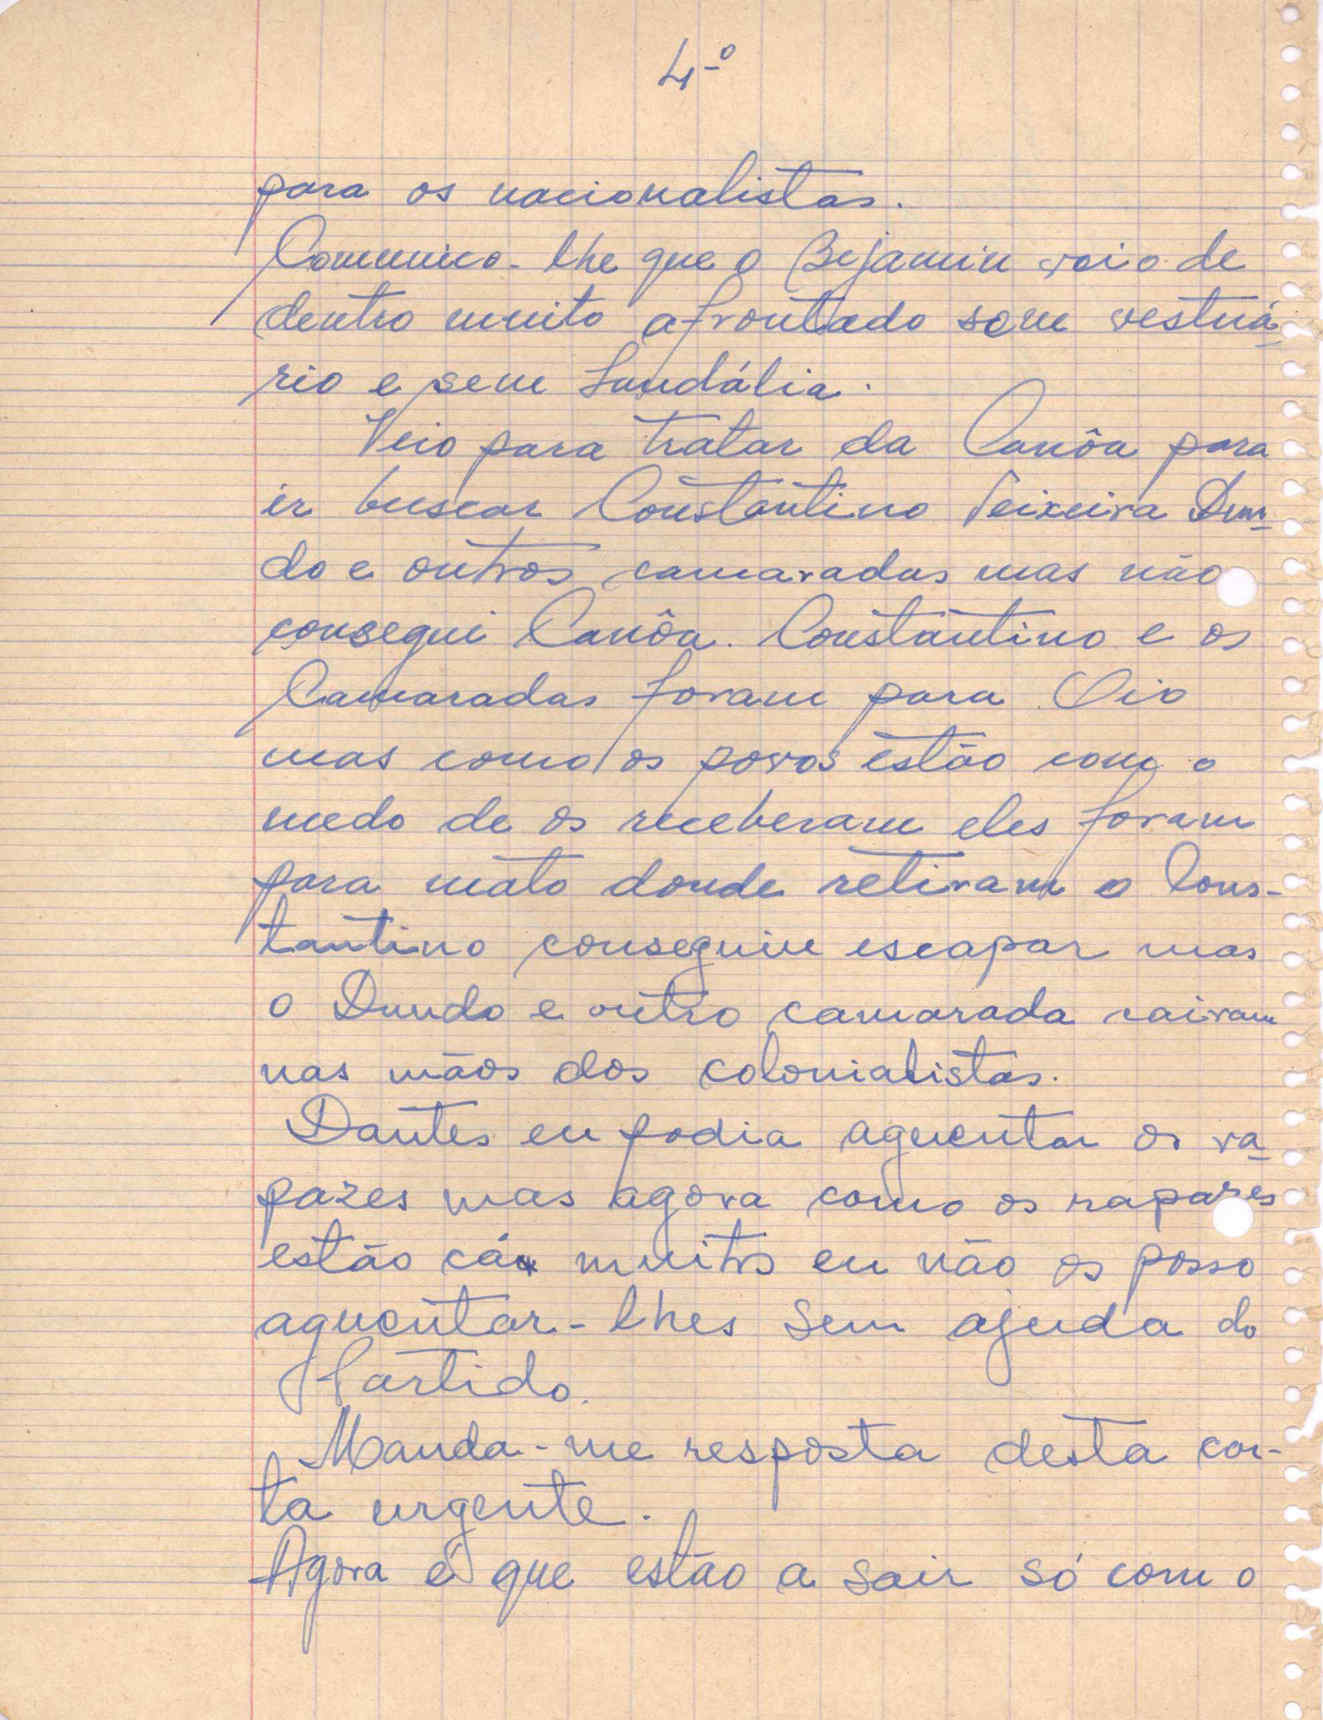 4º
para os nacionalistas.
Comunico-lhe que o Bejamin veio de
dentro muito afrontado sem vestuá-
rio e sem Sandália.
Veio para tratar da Canôa para
ir buscar Constantino Teixeira Dun-
do e outros camaradas mas não
consegui Canôa. Constantino e os
Camaradas foram para Oio
mas como os povos estão com o
medo de os receberam eles foram
para mato donde retiram o Cons-
tantino conseguiu escapar mas
o Dundo e outro camarada cairam
nas mãos dos colonialistas.
Dantes eu podia aguentar os ra-
pazes mas agora como os rapazes
estão cá muitos eu não os posso
aguentar-lhes sem ajuda do
Partido.
Manda-me resposta desta car-
ta urgente.
Agora é que estão a sair só com o